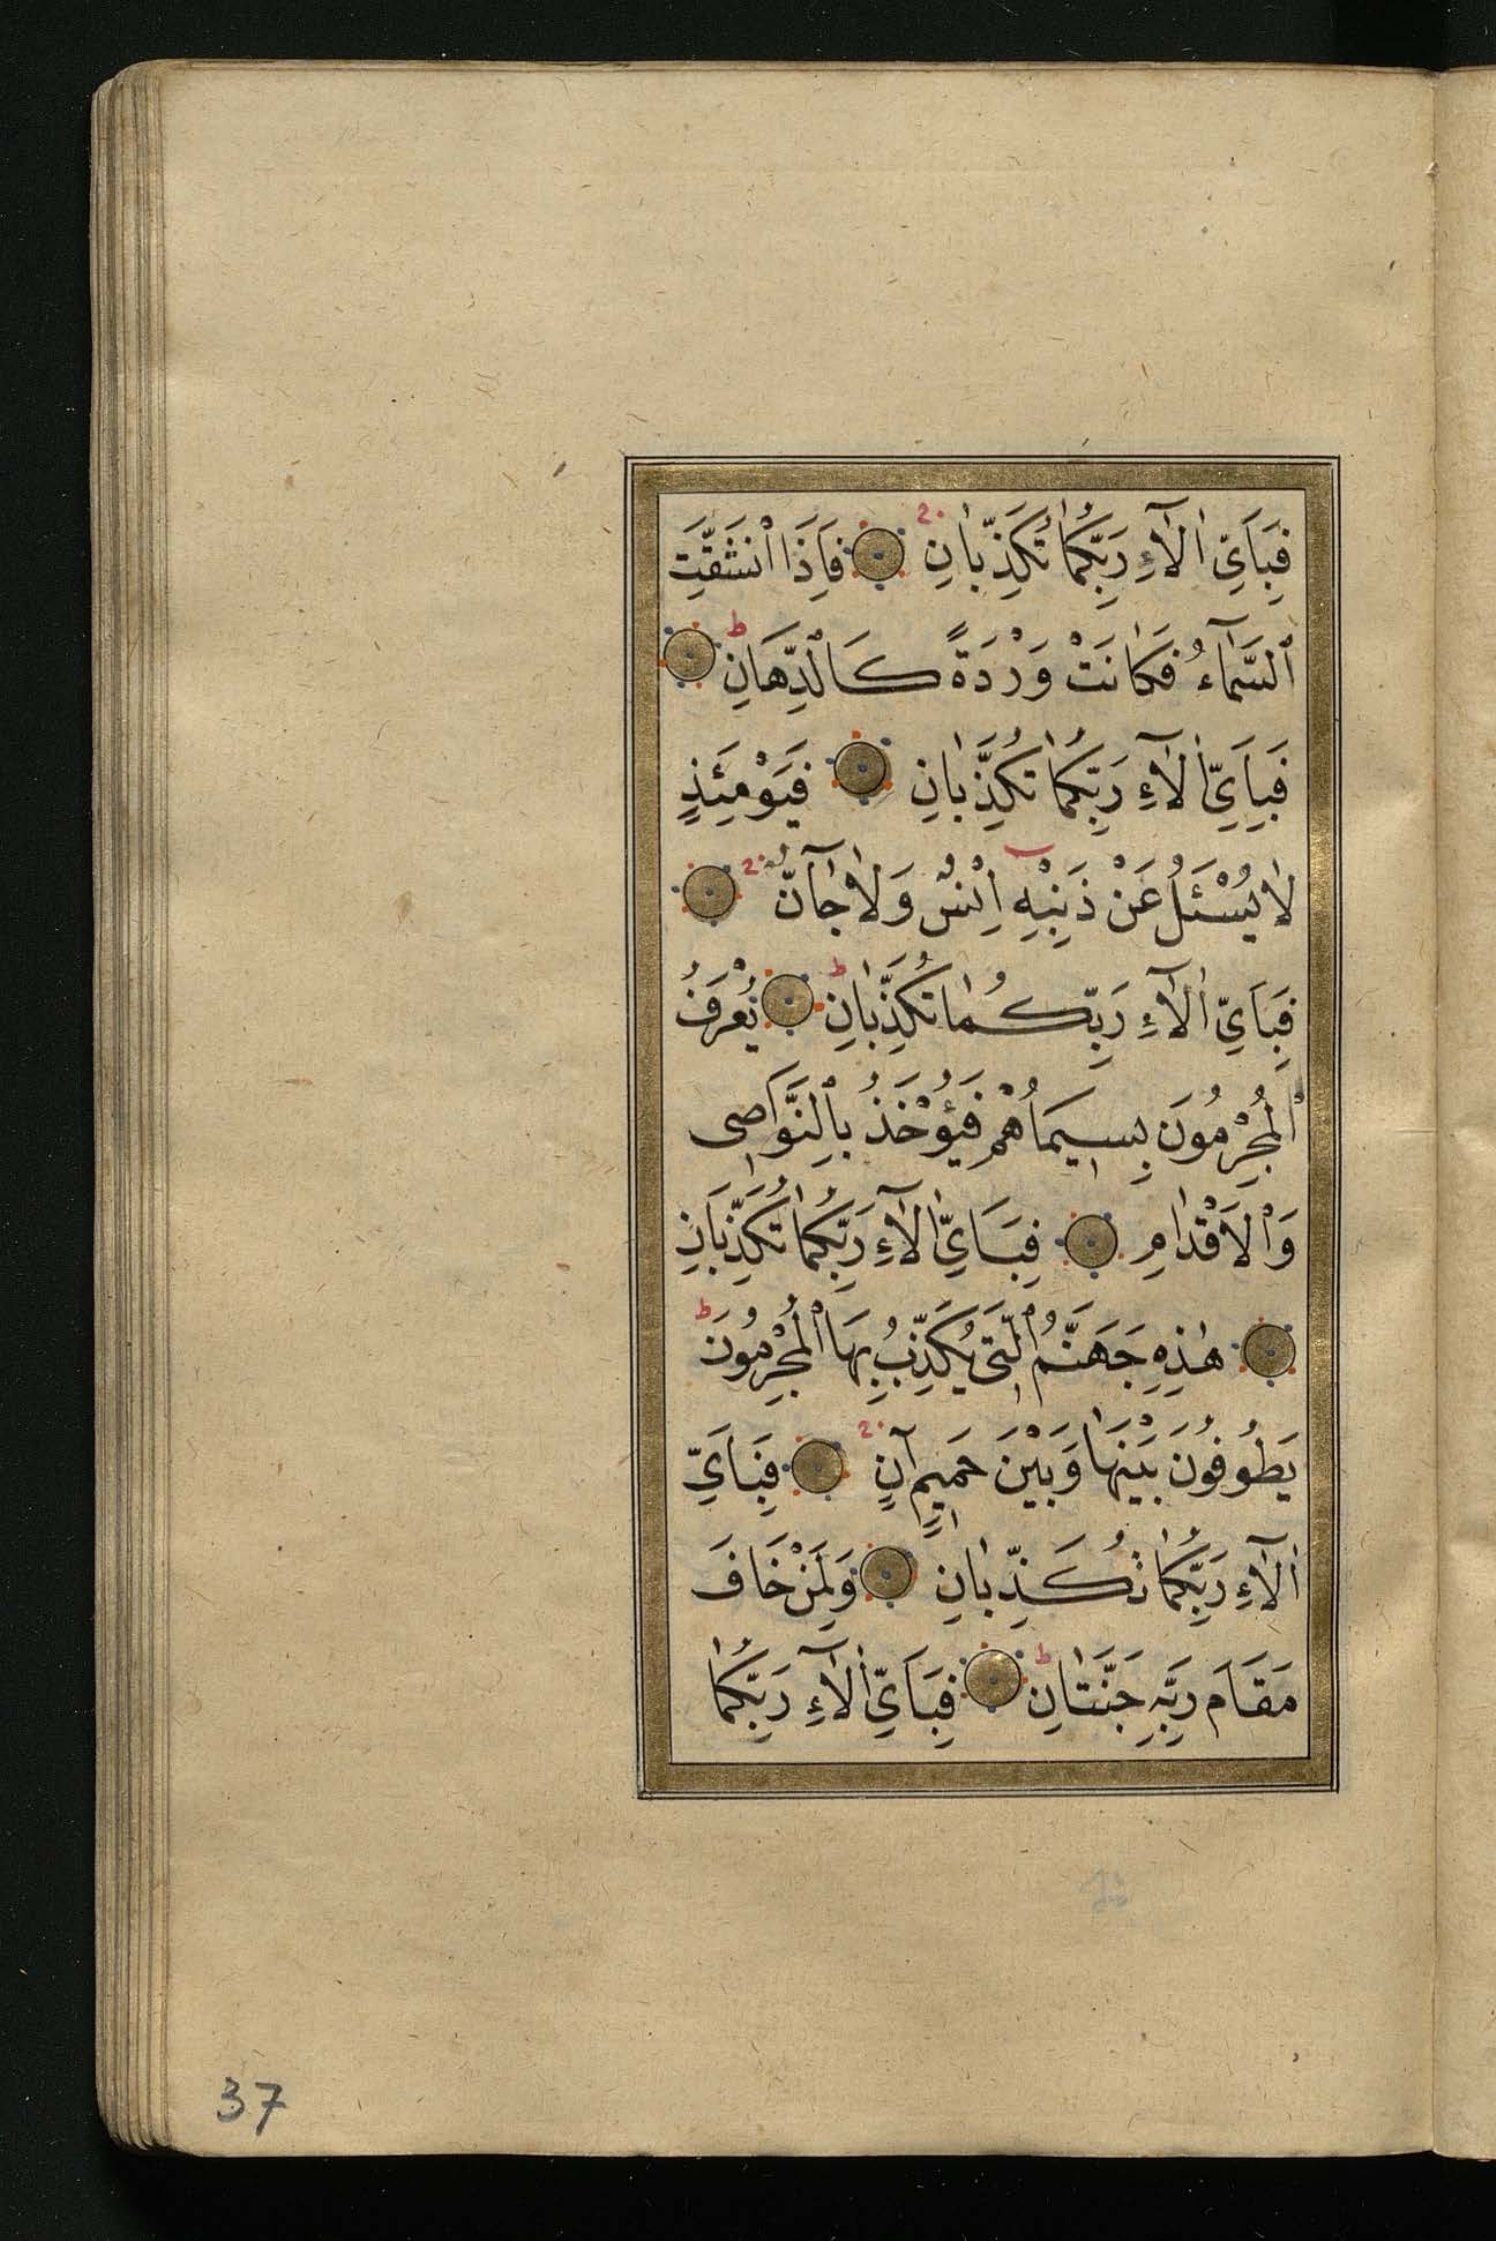 فَبِاَيِّ اٰلَآءِ رَبِّكُمَا تُكَذِّبَانِ فَاِذَا ٱنْشَقَّتِ
ٱلسَّمَآءُ فَكَانَتْ وَرْدَةً كَالدِّهَانِ ط
فَبِاَيِّ اٰلَآءِ رَبِّكُمَا تُكَذِّبَانِ فَيَوْمَئِذٍ
لَا يُسْئَلُ عَنْ ذَنْبِهِ اِنْسٌ وَلَا جَآنٌّ
فَبِاَيِّ اٰلَآءِ رَبِّكُمَا تُكَذِّبَانِ ط يُعْرَفُ
ٱلْمُجْرِمُونَ بِسِيمَاهُمْ فَيُؤْخَذُ بِالنَّوَاصِى
وَٱلْاَقْدَامِ فَبِاَيِّ اٰلَآءِ رَبِّكُمَا تُكَذِّبَانِ
هٰذِهِ جَهَنَّمُ ٱلَّتِى يُكَذِّبُ بِهَا ٱلْمُجْرِمُونَ ط
يَطُوفُونَ بَيْنَهَا وَبَيْنَ حَمِيمٍ آنٍ فَبِاَيِّ
اٰلَآءِ رَبِّكُمَا تُكَذِّبَانِ وَلِمَنْ خَافَ
مَقَامَ رَبِّهِ جَنَّتَانِ ط فَبِاَيِّ اٰلَآءِ رَبِّكُمَا
37